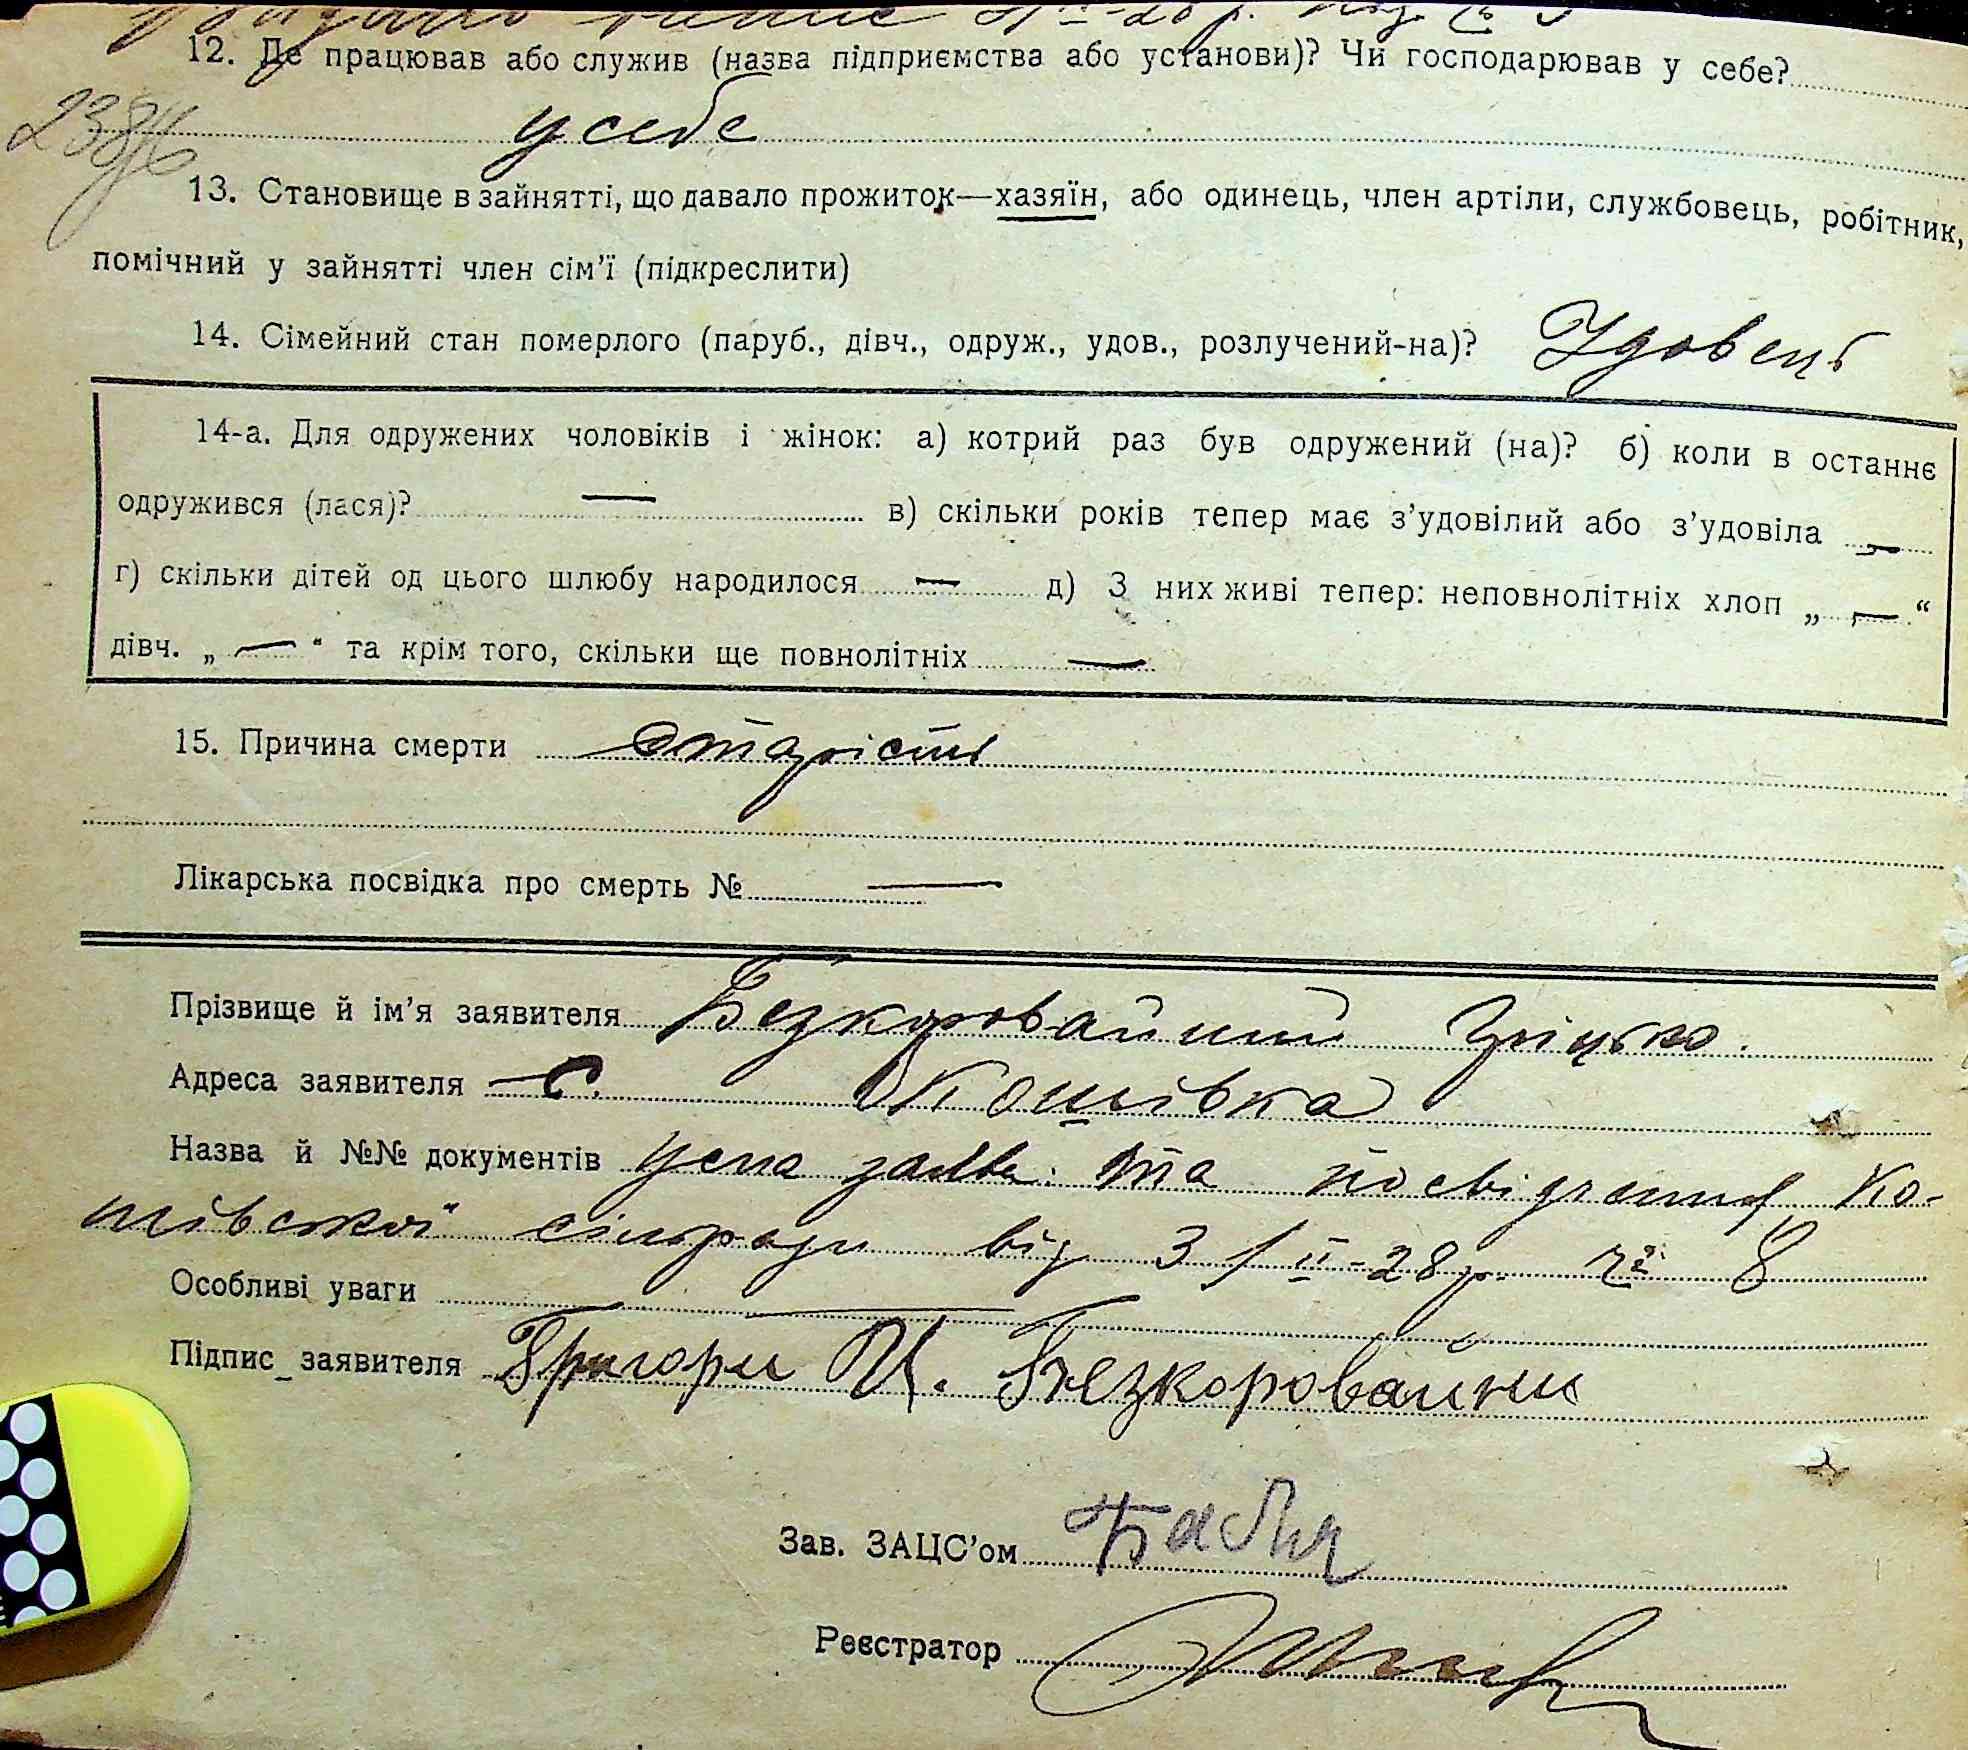 12. Де працював або служив (назва підприємства або установи)? Чи господарював у себе?
у себе
13. Становище в зайнятті, що давало прожиток—хазяїн, або одинець, член артіли, службовець, робітник,
помічний у зайнятті член сім’ї (підкреслити)
14. Сімейний стан померлого (паруб., дівч., одруж., удов., розлучений-на)? Удовець
14-а. Для одружених чоловіків і жінок: а) котрий раз був одружений (на)? б) коли в останнє
одружився (лася)? — в) скільки років тепер має з’удовілий або з’удовіла —
г) скільки дітей од цього шлюбу народилося — д) З них живі тепер: неповнолітніх хлоп „ — “
дівч. „ — “ та крім того, скільки ще повнолітніх —
15. Причина смерти старість
Лікарська посвідка про смерть № —
Прізвище й ім’я заявителя Безкоровайний Гріцько.
Адреса заявителя с. Кошівка
Назва й №№ документів усна заява та посвідчення Ко-
шівської сільради від 3/II-28р. № 8
Особливі уваги —
Підпис_заявителя Григори И. Безкоровайни
Зав. ЗАЦС’ом
Реєстратор